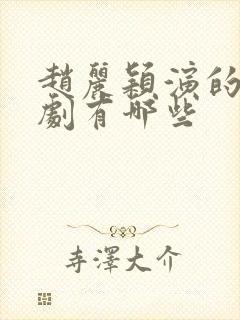 趙麗穎演的
劇有哪些
寺澤大介